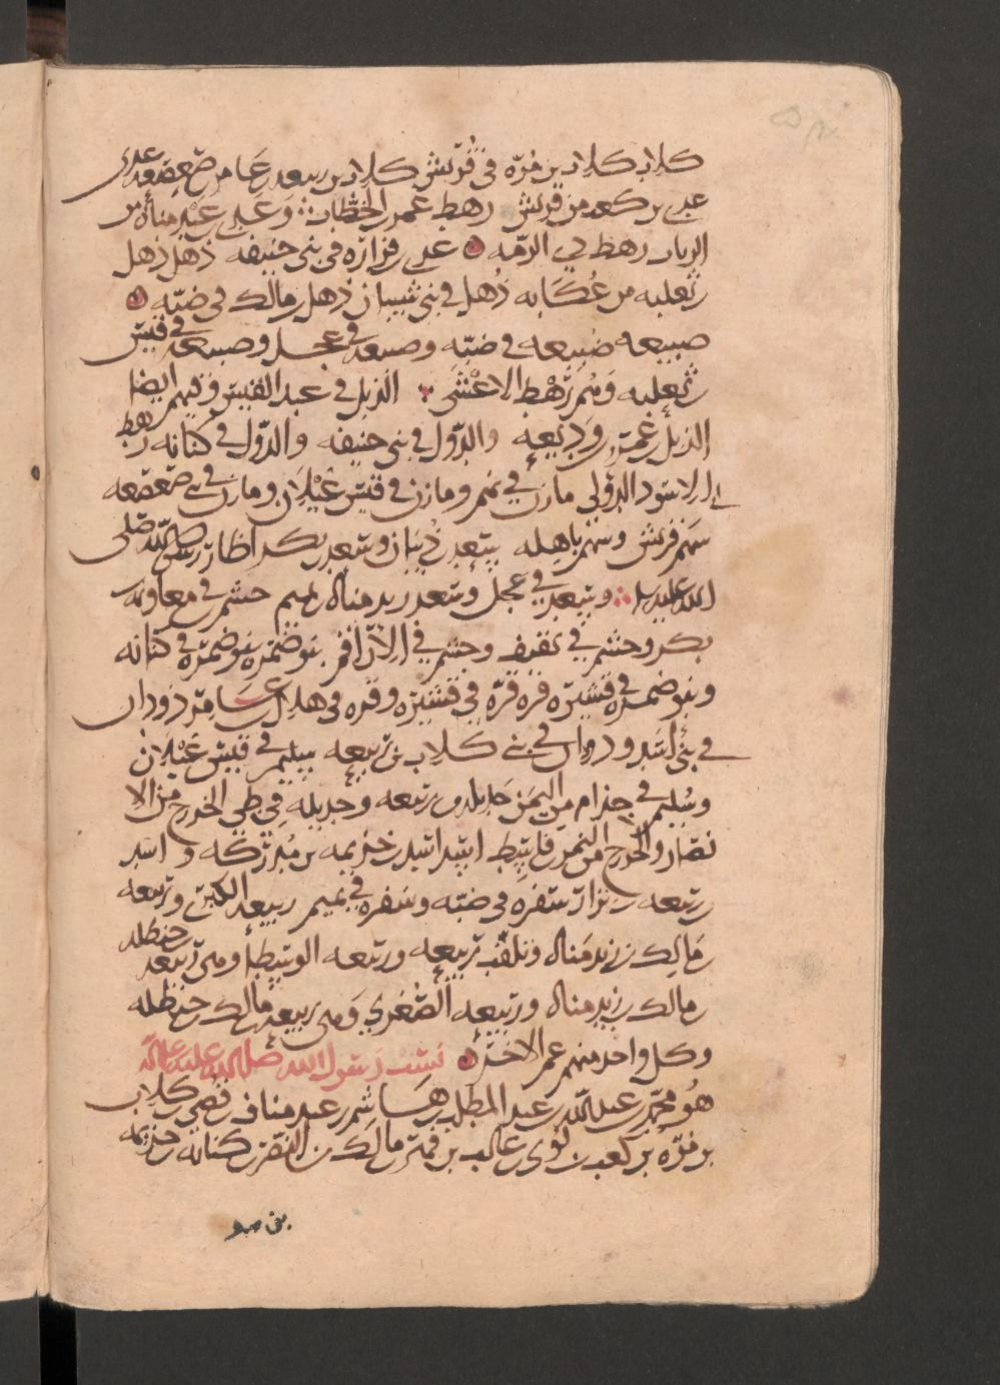 كلاب كلاب بن مُرّه في قُريش كلاب بن ربيعه بن عامر بن صعصعه عدي
عدي بن كعب من قريش رهط عمر بن الخطاب وعدي بن عبد مناه من
الرباب رهط ذي الرمّه عدي فزاره في بني حنيفه ذهل ذهل بن
ثعلبه من عُكابه ذُهل في بني شيبان ذهل بن مالك في ضبّه
ضبيعه ضبيعه في ضبّه وضبيعه في عجل وضبيعه في قيس بن
ثعلبه وهُم رَهْط الاعْشَى الديل في عبد القيس وفيهم ايضا
الديل بن عمرو بن وديعه والدّول في بني حنيفه والدّول في كنانه رهط
ابي الاسود الدؤلي مازن في تميم ومازن في قيس عَيْلان ومازن في بني صعصعه
سهم قريش وسهم باهله سعد ذُبيان وسعد بن بكر اظار رسول الله صلى
الله عليه وسلم وسعد في عجل وسعد بن زيد مناه بن تميم جشم في معاويه بن
بكر وجشم في ثقيف وجشم في الاراقم بنو ضمره بنو ضمره في كنانه
وبنو ضمره في قشير قره قرّه في قشيره وقره في هلال بن عامر دودان
في بني اسَد ودودان في بني كلاب بن ربيعه سليم في قيس عَيْلان
وسُليم في جذام من اليمن جديله في ربيعه وجديله في طي الخزرج من الا
نصار والخزرج من النمر بن قاسط اسد اسد بن خزيمه بن مُدركه و اسد بن
ربيعه بن نزار شقره في ضبّه وشقره في تميم ربيعه الكبرى وربيعه
بن مالك بن زيد مناه وتلقب ربيعه وربيعه الوسطا وهي ربيعه بن حنظله
بن مالك بن زيد مناه وربيعه الصُغرى وهي ربيعه بن مالك بن حنظله
وكل واحد منهم عم الاخر نسب رسول الله صلى الله عليه
هو محمّد بن عبد الله بن عبد المطلب بن هاشم بن عبد مناف بن قصي بن كلاب
بن مُرّه بن كعب بن لؤى بن غالب بن فهر بن مالك بن النضر بن كنانه بن خزيمه